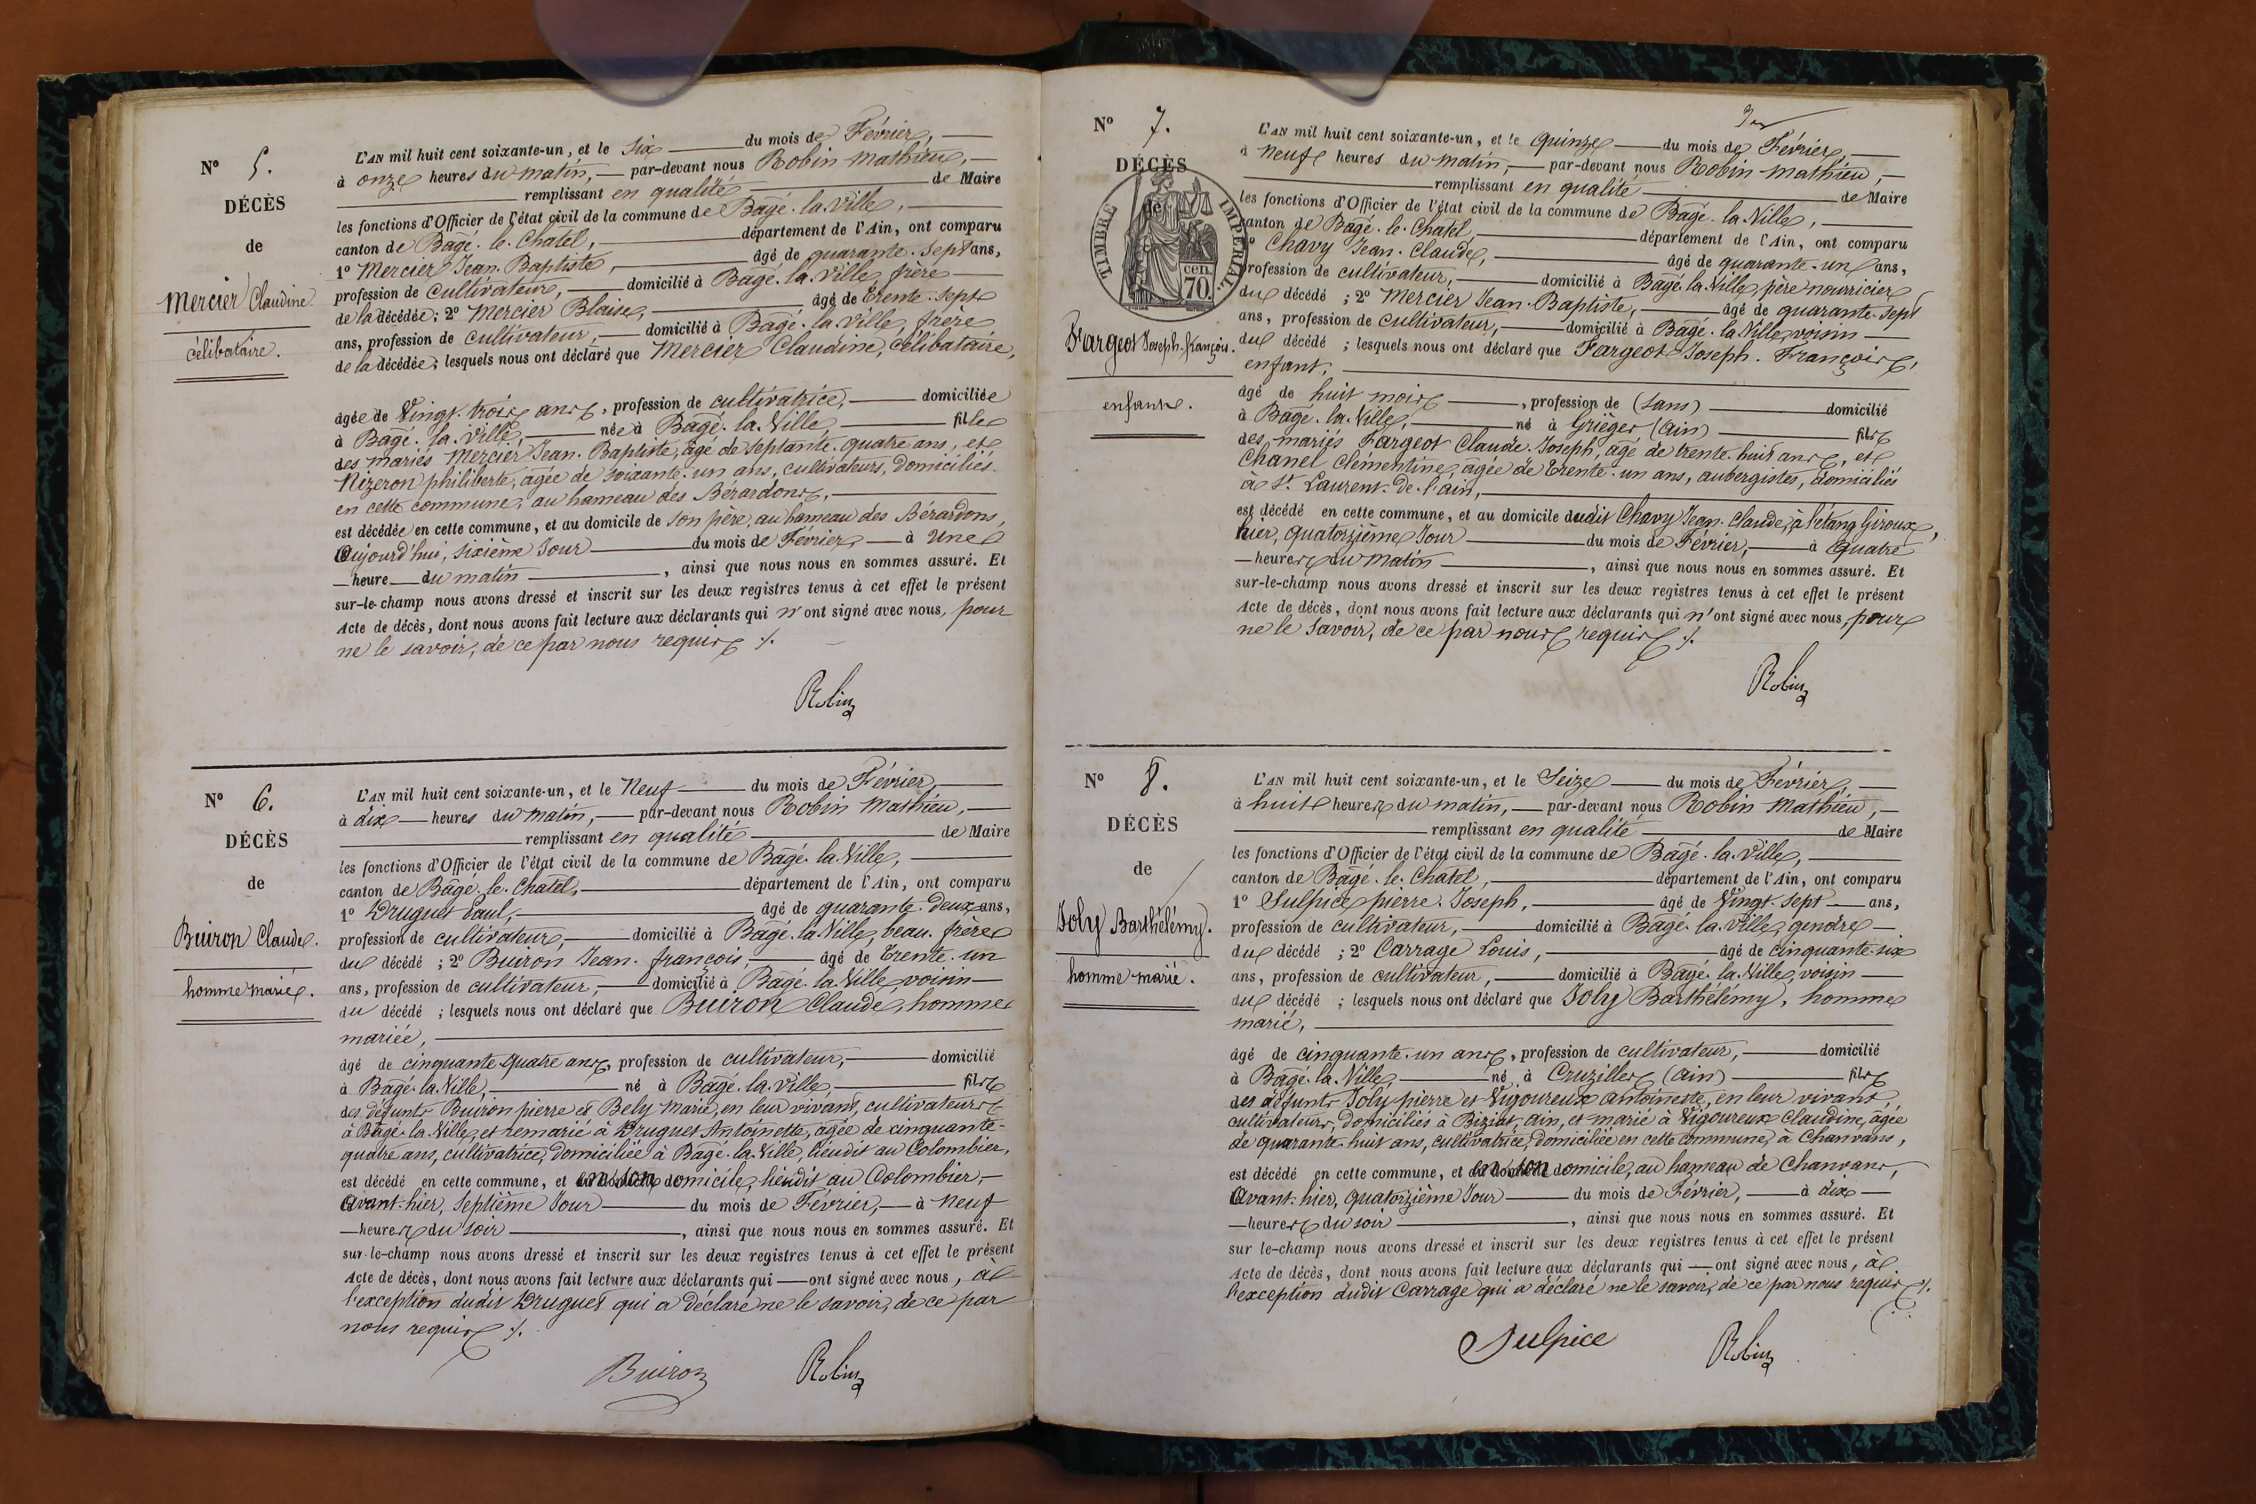 N° 5.
DÉCÈS
de
Mercier Claudine
célibataire.
L'AN mil huit cent soixante-un, et le Six du mois de Février,
à onze heures du matin, par-devant nous Robin Mathieu,
remplissant en qualité de Maire
les fonctions d'Officier de l'état civil de la commune de Bâgé-la-Ville,
canton de Bâgé-le-Chatel, département de l'Ain, ont comparu
1° Mercier Jean-Baptiste, âgé de quarante-sept ans,
profession de cultivateur, domicilié à Bâgé-la-Ville, frère
de la décédée; 2° Mercier Blaise, âgé de trente-sept
ans, profession de cultivateur, domicilié à Bâgé-la-Ville, frère
de la décédée; lesquels nous ont déclaré que Mercier Claudine, célibataire,
âgée de Vingt-trois ans, profession de cultivatrice, domiciliée
à Bâgé-la-Ville, née à Bâgé-la-Ville, fille
des mariés Mercier Jean-Baptiste, âgé de septante-quatre ans, et
Nizeron philiberte, âgée de soixante-un ans, cultivateurs, domiciliés
en cette commune, au hameau des Bérardons,
est décédée en cette commune, et au domicile de son père, au hameau des Bérardons,
Aujourd'hui, sixième Jour du mois de Février, à Une
heure du matin, ainsi que nous nous en sommes assuré. Et
sur-le-champ nous avons dressé et inscrit sur les deux registres tenus à cet effet le présent
Acte de décès, dont nous avons fait lecture aux déclarants qui n'ont signé avec nous, pour
ne le savoir, de ce par nous requis ./.
Robin
N° 6.
DÉCÈS
de
Buiron Claude.
homme marié.
L'AN mil huit cent soixante-un, et le Neuf du mois de Février,
à dix heures du matin, par-devant nous Robin Mathieu,
remplissant en qualité de Maire
les fonctions d'Officier de l'état civil de la commune de Bâgé-la-Ville,
canton de Bâgé-le-Chatel, département de l'Ain, ont comparu
1° Druguet Paul, âgé de quarante-deux ans,
profession de cultivateur, domicilié à Bâgé-la-Ville, beau-frère
du décédé ; 2° Buiron Jean-françois, âgé de trente-un
ans, profession de cultivateur, domicilié à Bâgé-la-Ville, voisin
du décédé ; lesquels nous ont déclaré que Buiron Claude, homme
mariée,
âgé de cinquante-quatre ans, profession de cultivateur, domicilié
à Bâgé-la-Ville, né à Bâgé-la-Ville, fils
des défunts Buiron pierre et Bely Marie, en leur vivant, cultivateurs
à Bâgé-la-Ville, et remarié à Druguet Antoinette, âgée de cinquante-
quatre ans, cultivatrice, domiciliée à Bâgé-la-Ville, lieudit au Colombier,
est décédé en cette commune, et en son domicile, lieudit au Colombier,
Avant-hier, Septième Jour du mois de Février, à Neuf
heures du soir, ainsi que nous nous en sommes assuré. Et
sur-le-champ nous avons dressé et inscrit sur les deux registres tenus à cet effet le présent
Acte de décès, dont nous avons fait lecture aux déclarants qui ont signé avec nous, à
l'exception dudit Druguet qui a déclaré ne le savoir, de ce par
nous requis ./.
Buiron Robin
N° 7.
DÉCÈS
de
TIMBRE IMPÉRIAL
cen.
70.
Fargeot Joseph-françois.
enfant.
L'AN mil huit cent soixante-un, et le Quinze du mois de Février,
à Neuf heures du matin, par-devant nous Robin Mathieu,
remplissant en qualité de Maire
les fonctions d'Officier de l'état civil de la commune de Bâgé-la-Ville,
canton de Bâgé-le-Chatel, département de l'Ain, ont comparu
1° Chavy Jean-Claude, âgé de quarante-un ans,
profession de cultivateur, domicilié à Bâgé-la-Ville, père nourricier
du décédé ; 2° Mercier Jean-Baptiste, âgé de quarante-sept
ans, profession de cultivateur, domicilié à Bâgé-la-Ville, voisin
du décédé ; lesquels nous ont déclaré que Fargeot Joseph-François,
enfant,
âgé de huit mois, profession de (sans) domicilié
à Bâgé-la-Ville, né à Grièges (ain) fils
des mariés Fargeot Claude-Joseph, âgé de trente-huit ans, et
Chanel Clémentine, âgée de trente-un ans, aubergistes, domiciliés
à St Laurent-de-l'ain,
est décédé en cette commune, et au domicile dudit Chavy Jean-Claude, à l'étang Giroux,
hier, quatorzième Jour du mois de Février, à quatre
heures du matin, ainsi que nous nous en sommes assuré. Et
sur-le-champ nous avons dressé et inscrit sur les deux registres tenus à cet effet le présent
Acte de décès, dont nous avons fait lecture aux déclarants qui n'ont signé avec nous, pour
ne le savoir, de ce par nous requis ./.
Robin
N° 8.
DÉCÈS
de
Joly Barthélémy.
homme marié.
L'AN mil huit cent soixante-un, et le Seize du mois de Février,
à huit heures du matin, par-devant nous Robin Mathieu,
remplissant en qualité de Maire
les fonctions d'Officier de l'état civil de la commune de Bâgé-la-Ville,
canton de Bâgé-le-Chatel, département de l'Ain, ont comparu
1° Sulpice pierre-Joseph, âgé de Vingt-sept ans,
profession de cultivateur, domicilié à Bâgé-la-Ville, gendre
du décédé ; 2° Carrage Louis, âgé de cinquante-six
ans, profession de cultivateur, domicilié à Bâgé-la-Ville, voisin
du décédé ; lesquels nous ont déclaré que Joly Barthélémy, homme
marié,
âgé de cinquante-un ans, profession de cultivateur, domicilié
à Bâgé-la-Ville, né à Cruzilles (ain) fils
des défunts Joly pierre et Vigoureux antoinette, en leur vivant,
cultivateurs, domiciliés à Biziat, ain, et marié à Vigoureux Claudine, âgée
de quarante-huit ans, cultivatrice, domiciliée en cette commune, à Chanvans,
est décédé en cette commune, et en son domicile, au hameau de Chanvans,
Avant-hier, quatorzième Jour du mois de Février, à dix
heures du soir, ainsi que nous nous en sommes assuré. Et
sur le-champ nous avons dressé et inscrit sur les deux registres tenus à cet effet le présent
Acte de décès, dont nous avons fait lecture aux déclarants qui ont signé avec nous, à
l'exception dudit Carrage qui a déclaré ne le savoir, de ce par nous requis ./.
Sulpice Robin